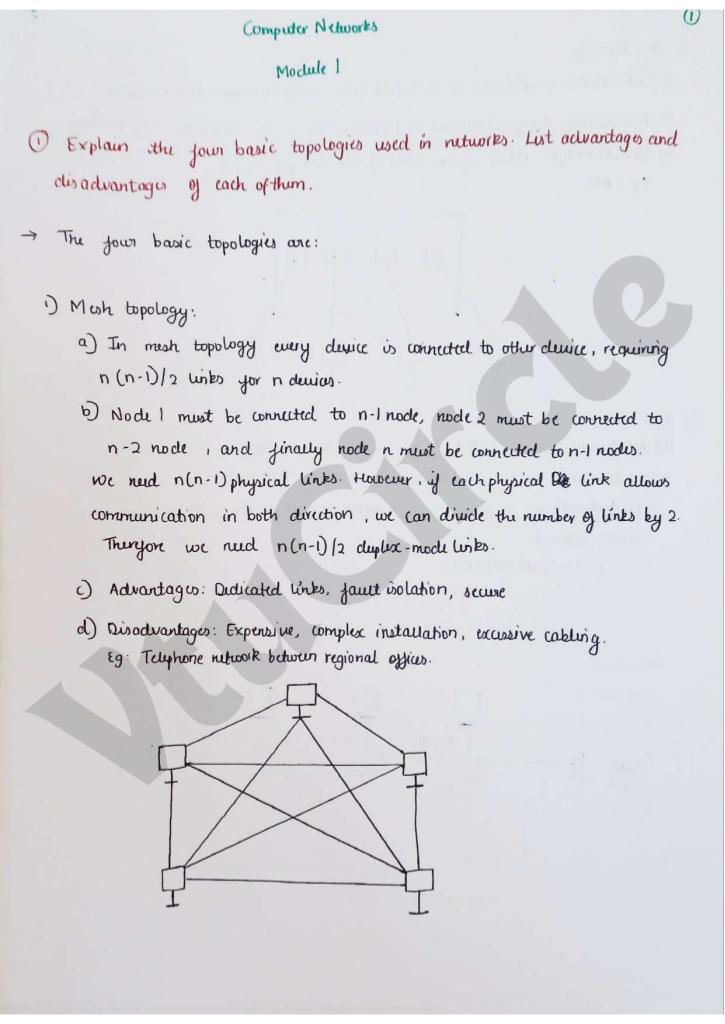 ①
Computer Networks
Module 1
① Explain the four basic topologies used in networks. List advantages and
disadvantages of each of them.
→ The four basic topologies are:
1) Mesh topology:
a) In mesh topology every device is connected to other device, requiring
n(n-1)/2 links for n devices.
b) Node 1 must be connected to n-1 node, node 2 must be connected to
n-2 node, and finally node n must be connected to n-1 nodes.
we need n(n-1) physical links. However, if each physical link allows
communication in both direction, we can divide the number of links by 2.
Therefore we need n(n-1)/2 duplex-mode links.
c) Advantages: Dedicated links, fault isolation, secure
d) Disadvantages: Expensive, complex installation, excessive cabling.
Eg: Telephone network between regional offices.
VtuCircle